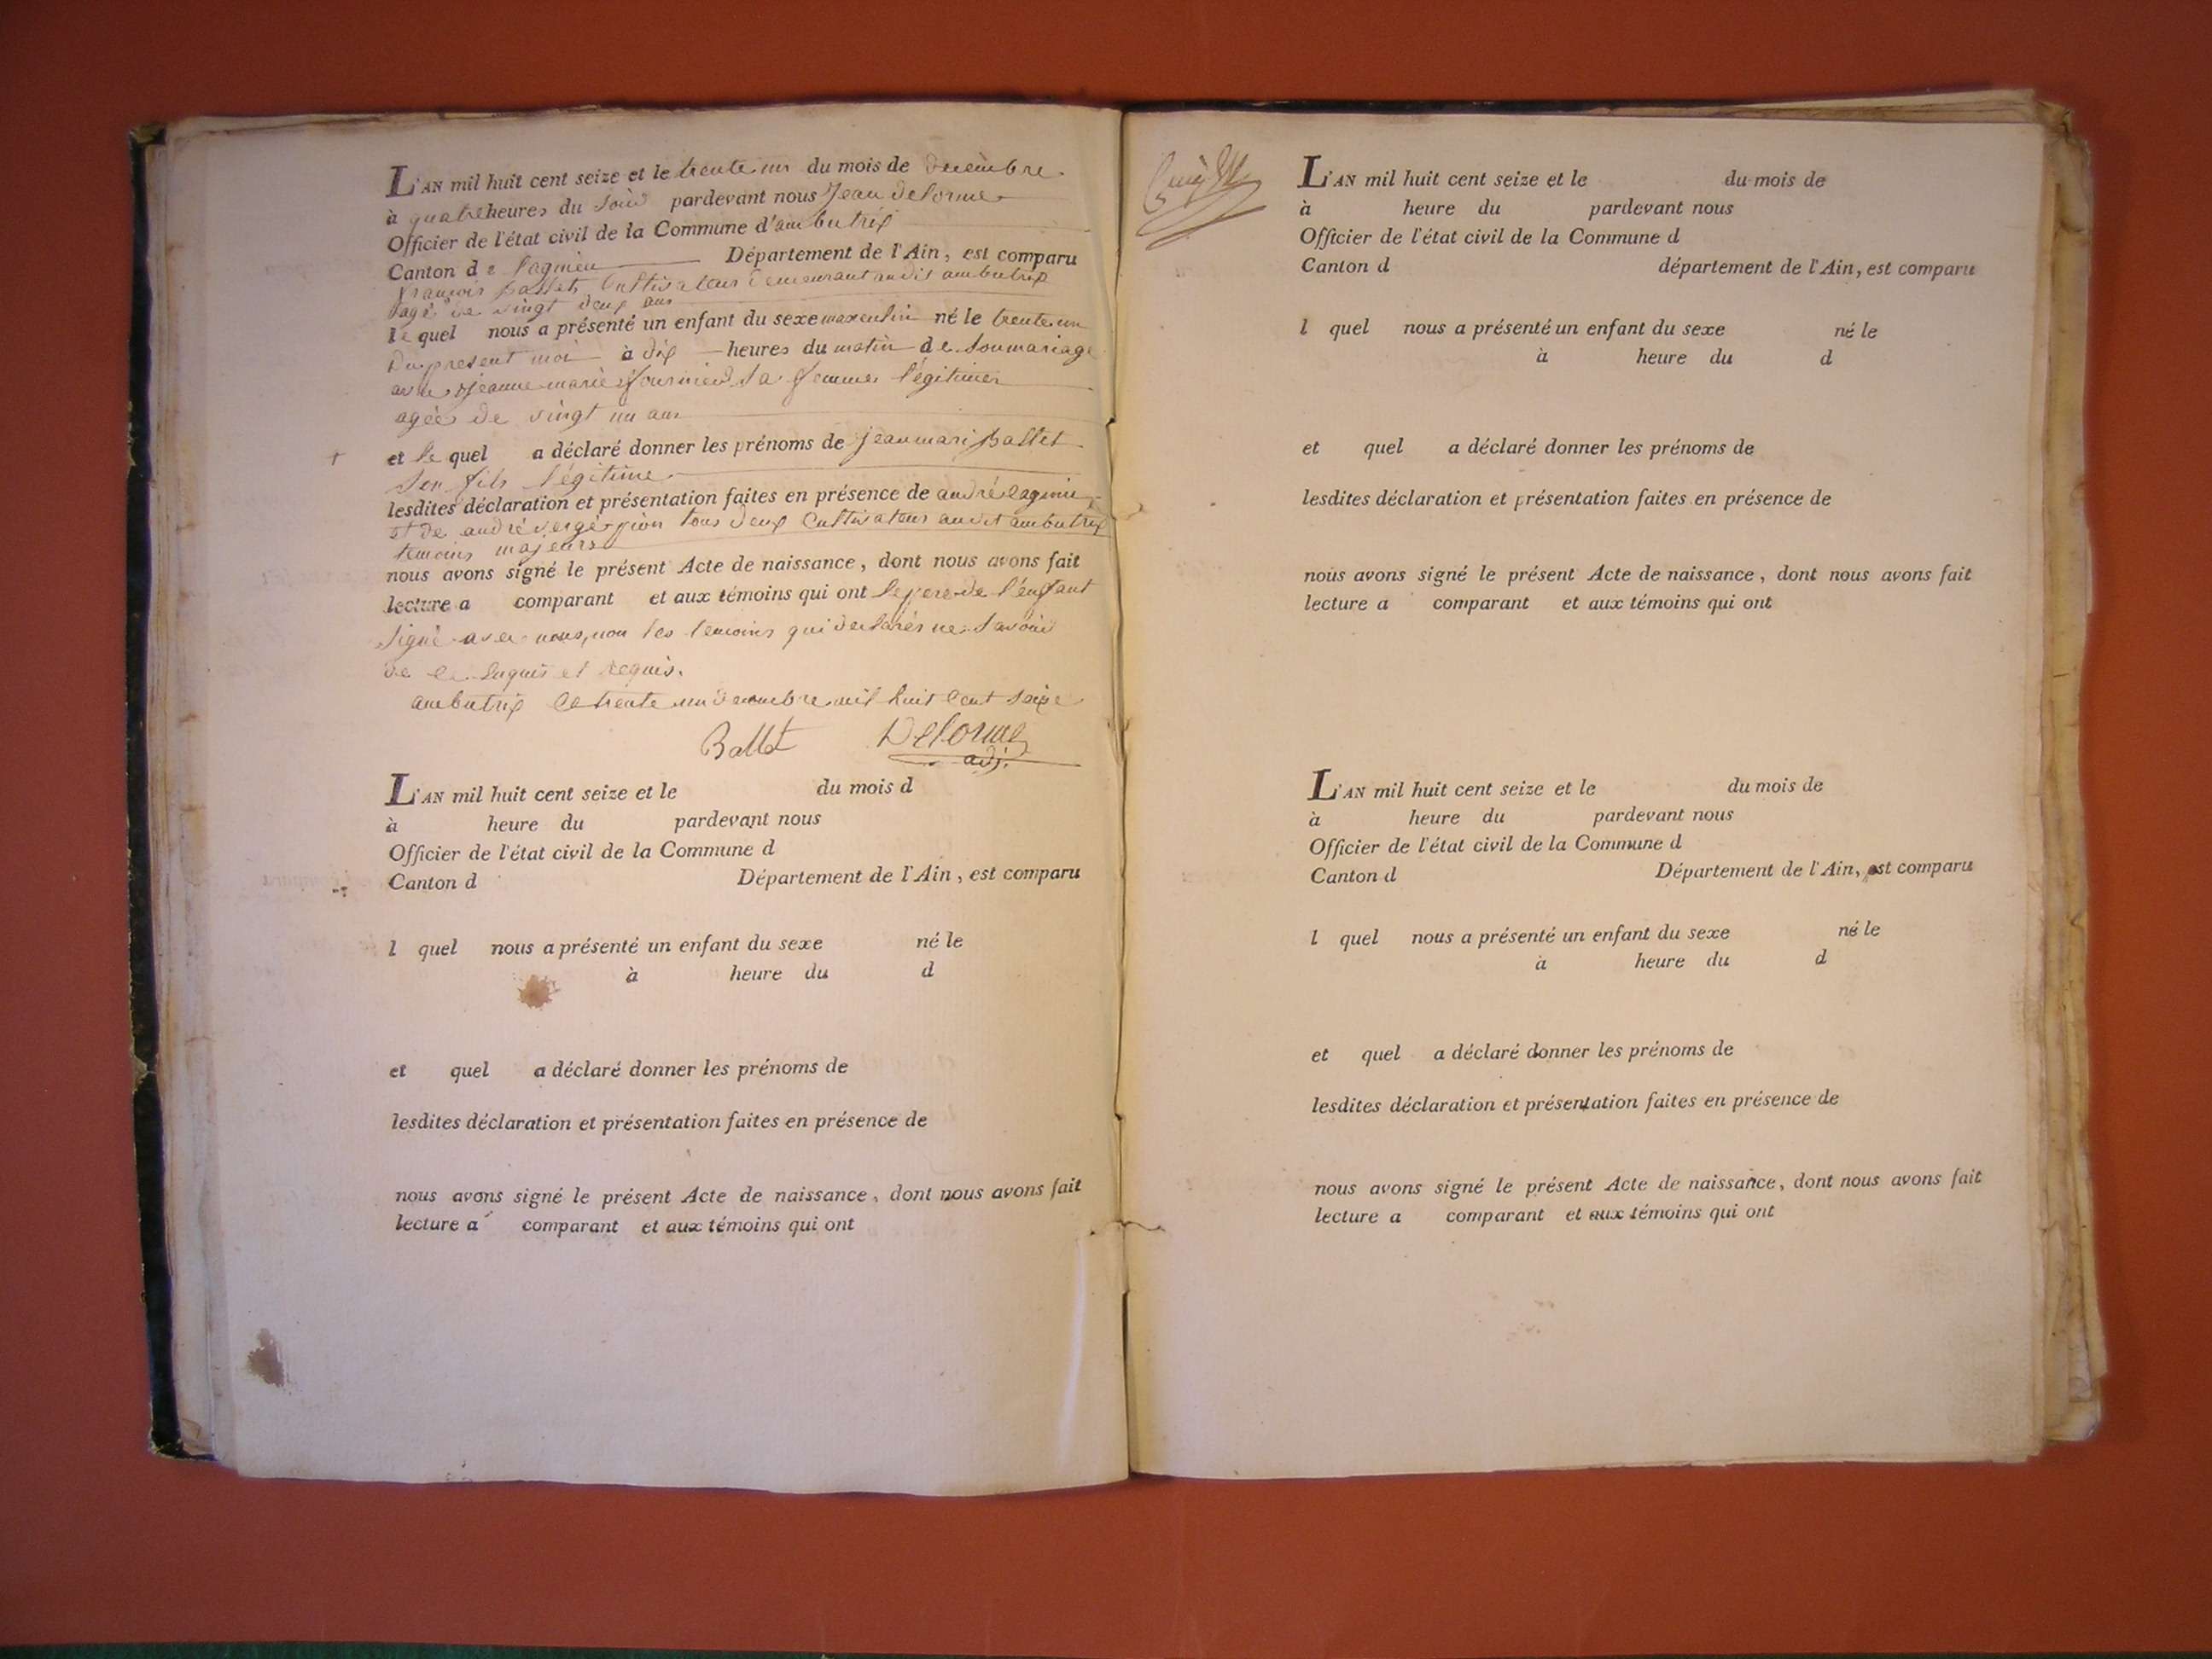 L'AN mil huit cent seize et le trente un du mois de decembre
à quatre heures du soir pardevant nous Jean delorme
Officier de l'état civil de la Commune d'ambutrix
Canton de lagnieu Département de l'Ain, est comparu
françois ballet Cultivateur demeurant audit ambutrix
agé de vingt deux ans
le quel nous a présenté un enfant du sexe masculin né le trente un
du present moi à dix heures du matin de son mariage
avec jeanne marie fournier sa femme légitime
agée de vingt un ans
et le quel a déclaré donner les prénoms de jean mari ballet
son fils légitime
lesdites déclaration et présentation faites en présence de andré
et de andré tous deux Cultivateur audit ambutrix
temoins majeurs
nous avons signé le présent Acte de naissance, dont nous avons fait
lecture a comparant et aux témoins qui ont le pere de l'enfant
signé avec nous, non les temoins qui declarés ne savoir
de ce enquis et requis.
ambutrix le trente un decembre mil huit cent seize
Ballet Delorme
adj.
L'AN mil huit cent seize et le du mois d
à heure du pardevant nous
Officier de l'état civil de la Commune d
Canton d Département de l'Ain, est comparu
l quel nous a présenté un enfant du sexe né le
à heure du d
et quel a déclaré donner les prénoms de
lesdites déclaration et présentation faites en présence de
nous avons signé le présent Acte de naissance, dont nous avons fait
lecture a comparant et aux témoins qui ont
L'AN mil huit cent seize et le du mois de
à heure du pardevant nous
Officier de l'état civil de la Commune d
Canton d département de l'Ain, est comparu
l quel nous a présenté un enfant du sexe né le
à heure du d
et quel a déclaré donner les prénoms de
lesdites déclaration et présentation faites en présence de
nous avons signé le présent Acte de naissance, dont nous avons fait
lecture a comparant et aux témoins qui ont
L'AN mil huit cent seize et le du mois de
à heure du pardevant nous
Officier de l'état civil de la Commune d
Canton d Département de l'Ain, est comparu
l quel nous a présenté un enfant du sexe né le
à heure du d
et quel a déclaré donner les prénoms de
lesdites déclaration et présentation faites en présence de
nous avons signé le présent Acte de naissance, dont nous avons fait
lecture a comparant et aux témoins qui ont